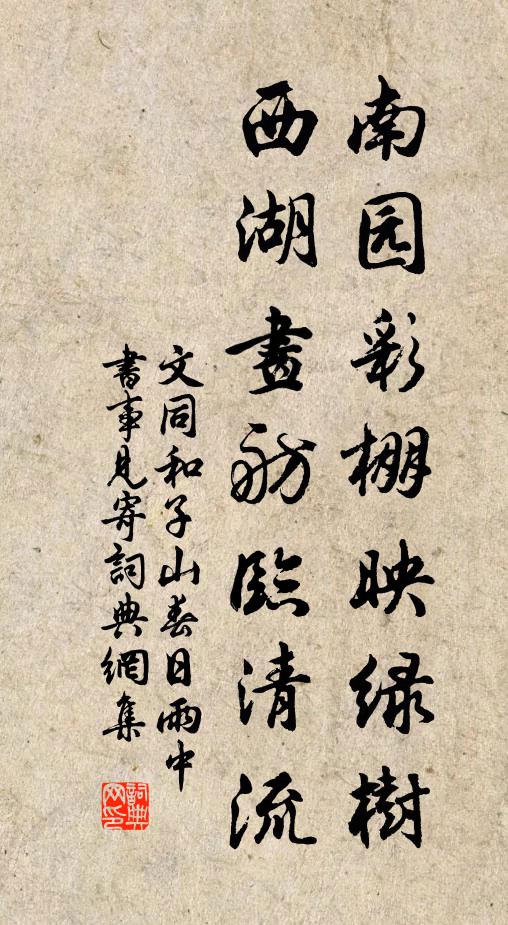 南园彩棚映绿樹
西湖畫舫臨清流
文同和子山春日雨中
書事見寄詞典網集
詞典网印